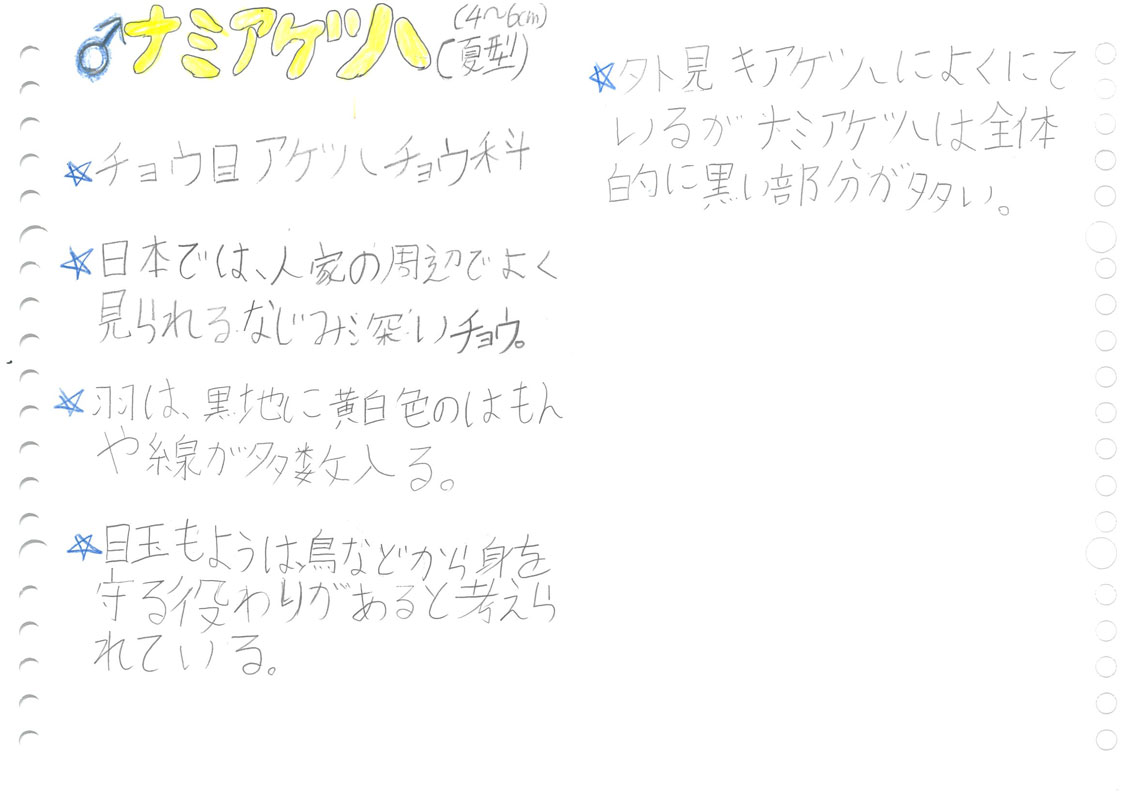 ♂ナミアゲハ(4〜6cm)
(夏型)
☆チョウ目アゲハチョウ科
☆日本では、人家の周辺でよく
見られるなじみ深いチョウ。
☆羽は、黒地に黄白色のはもん
や線が多数入る。
☆目玉もようは、鳥などから身を
守る役わりがあると考えら
れている。
☆外見 キアゲハによくにて
いるが ナミアゲハは全体
的に黒い部分が多い。